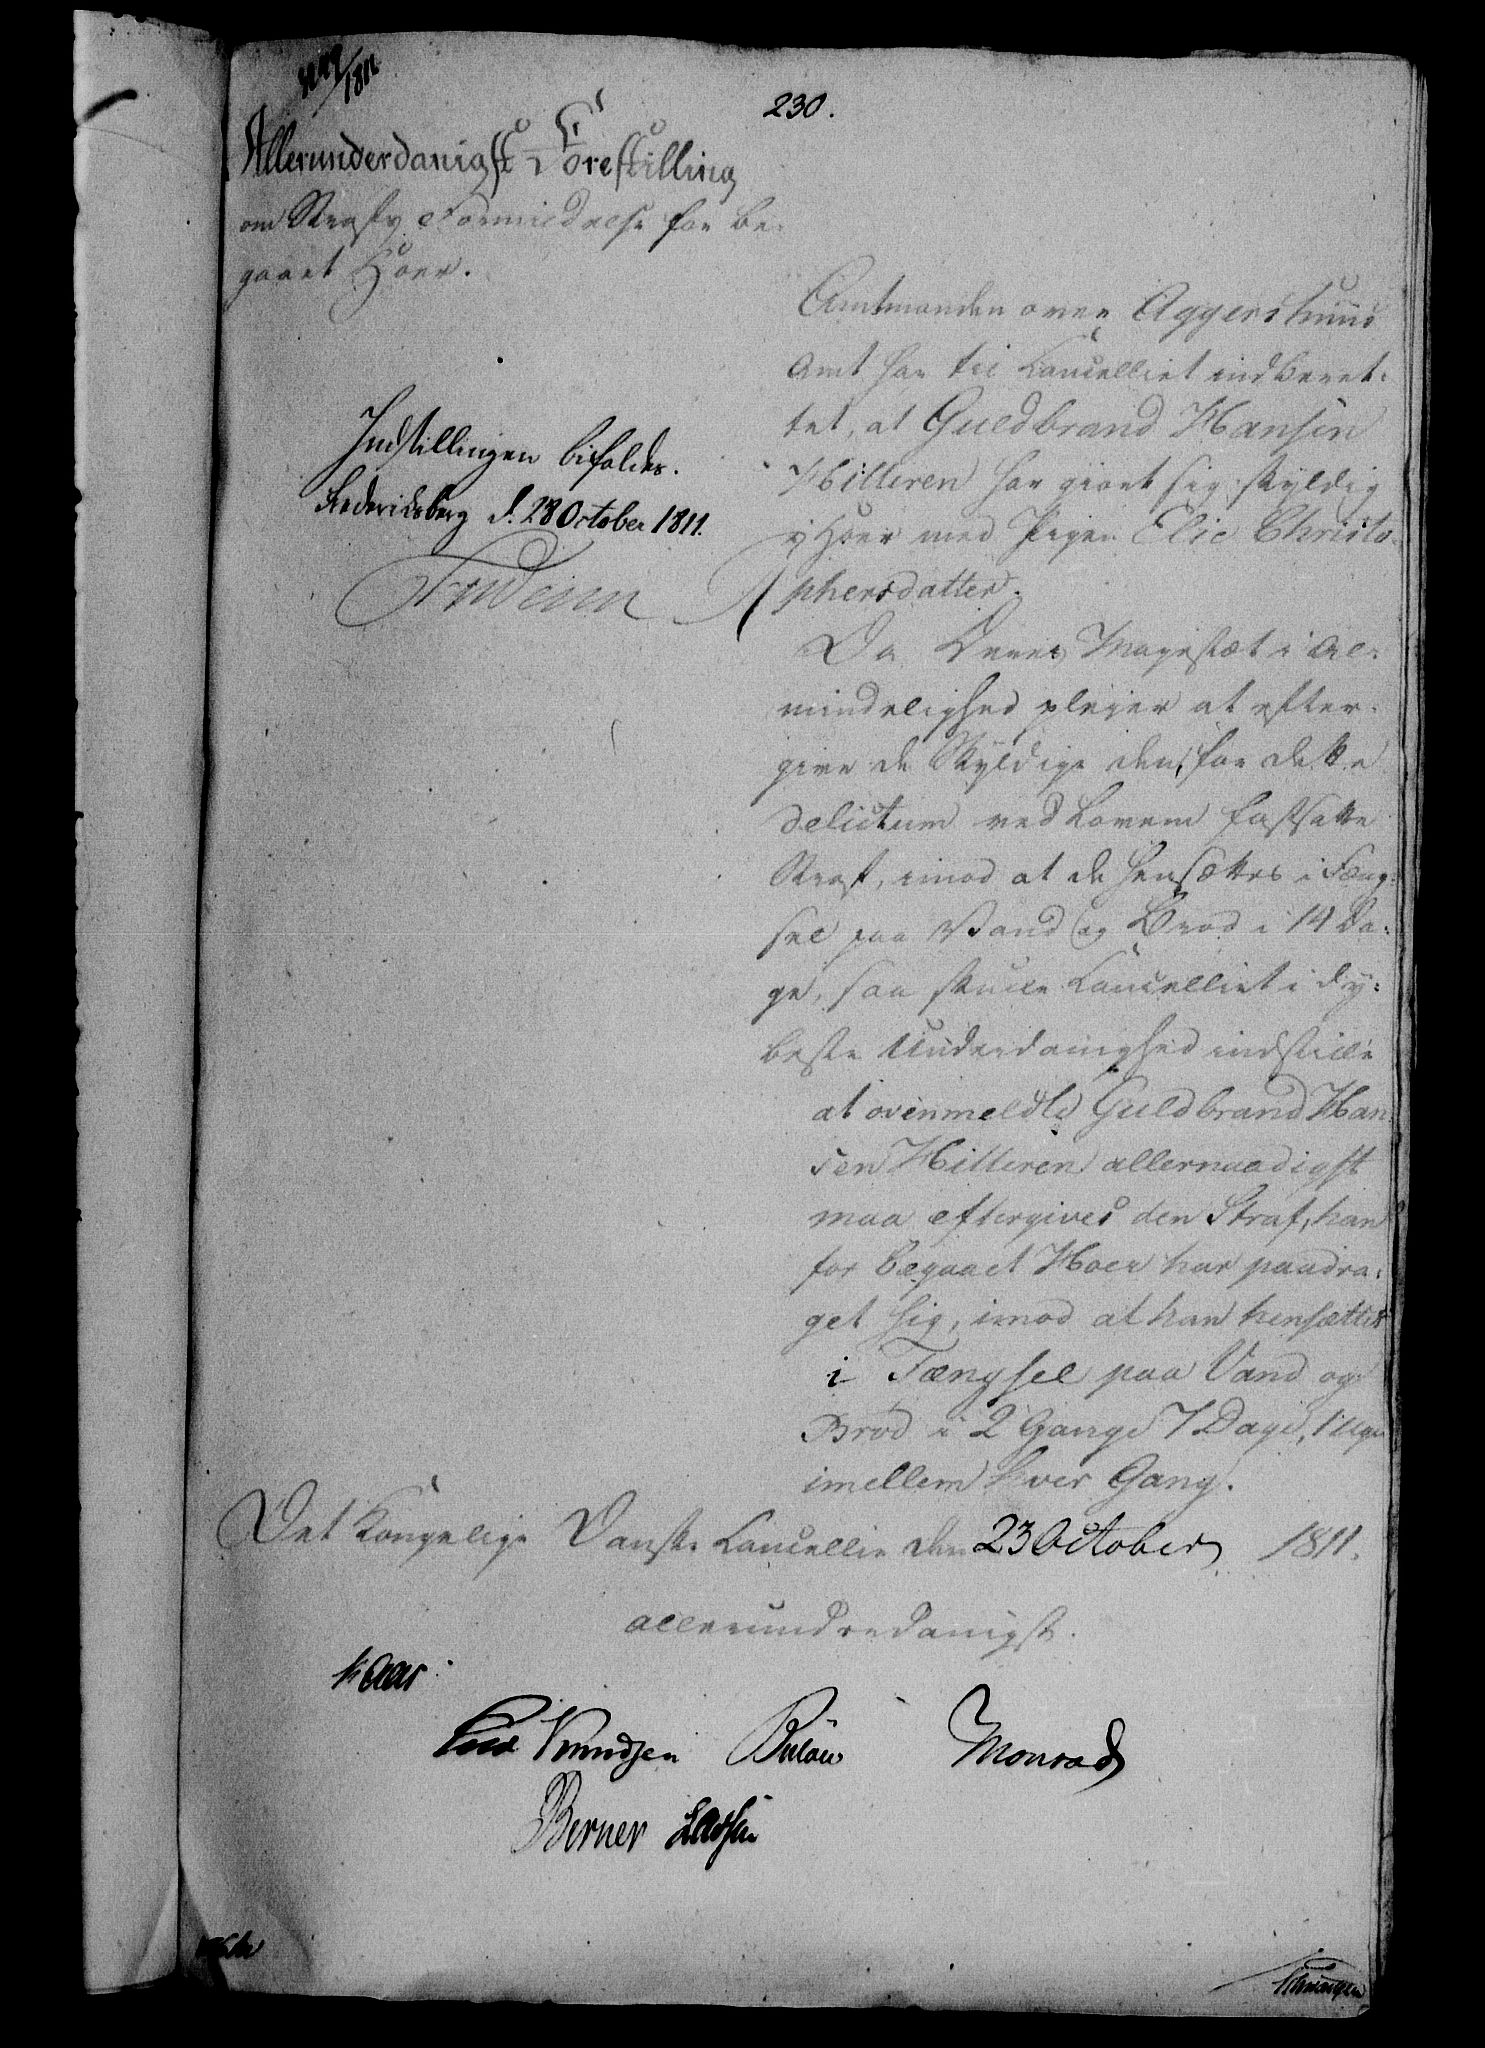 230.
Allerunderdanigst Forestilling
om Straffs Formildelse for be-
gaaet Hoer.
Amtmanden over Aggershuus
Amt har til Cancelliet indberet-
tet, at Guldbrand Hansen
Hilleren har giort sig skyldig
i Hoer med Pigen Elie Christo-
phersdatter.
Indstillingen bifaldes.
Frederiksberg d. 28 October 1811.
Frederik R
Da Deres Majestæt i Al-
mindelighed pleier at efter-
give de Skyldige den for dette
delictum ved Loven fastsatte
Straf, imod at de hensættes i Fæng-
sel paa Vand og Brød i 14 Da-
ge, saa skulle Cancelliet i dy-
beste Underdanighed indstille
at ovenmeldte Guldbrand Han-
sen Hilleren allernaadigst
maa eftergives den Straf, han
for begaaet Hoer har paadra-
get sig, imod at han hensættes
i Fængsel paa Vand og
Brød i 2 Gange 7 Dage, 1 Uge
imellem hver Gang.
Det Kongelige Danske Cancellie den 23 October 1811.
allerunderdanigst.
Kaas
Knudsen Bülow Monrad
Berner Lassen